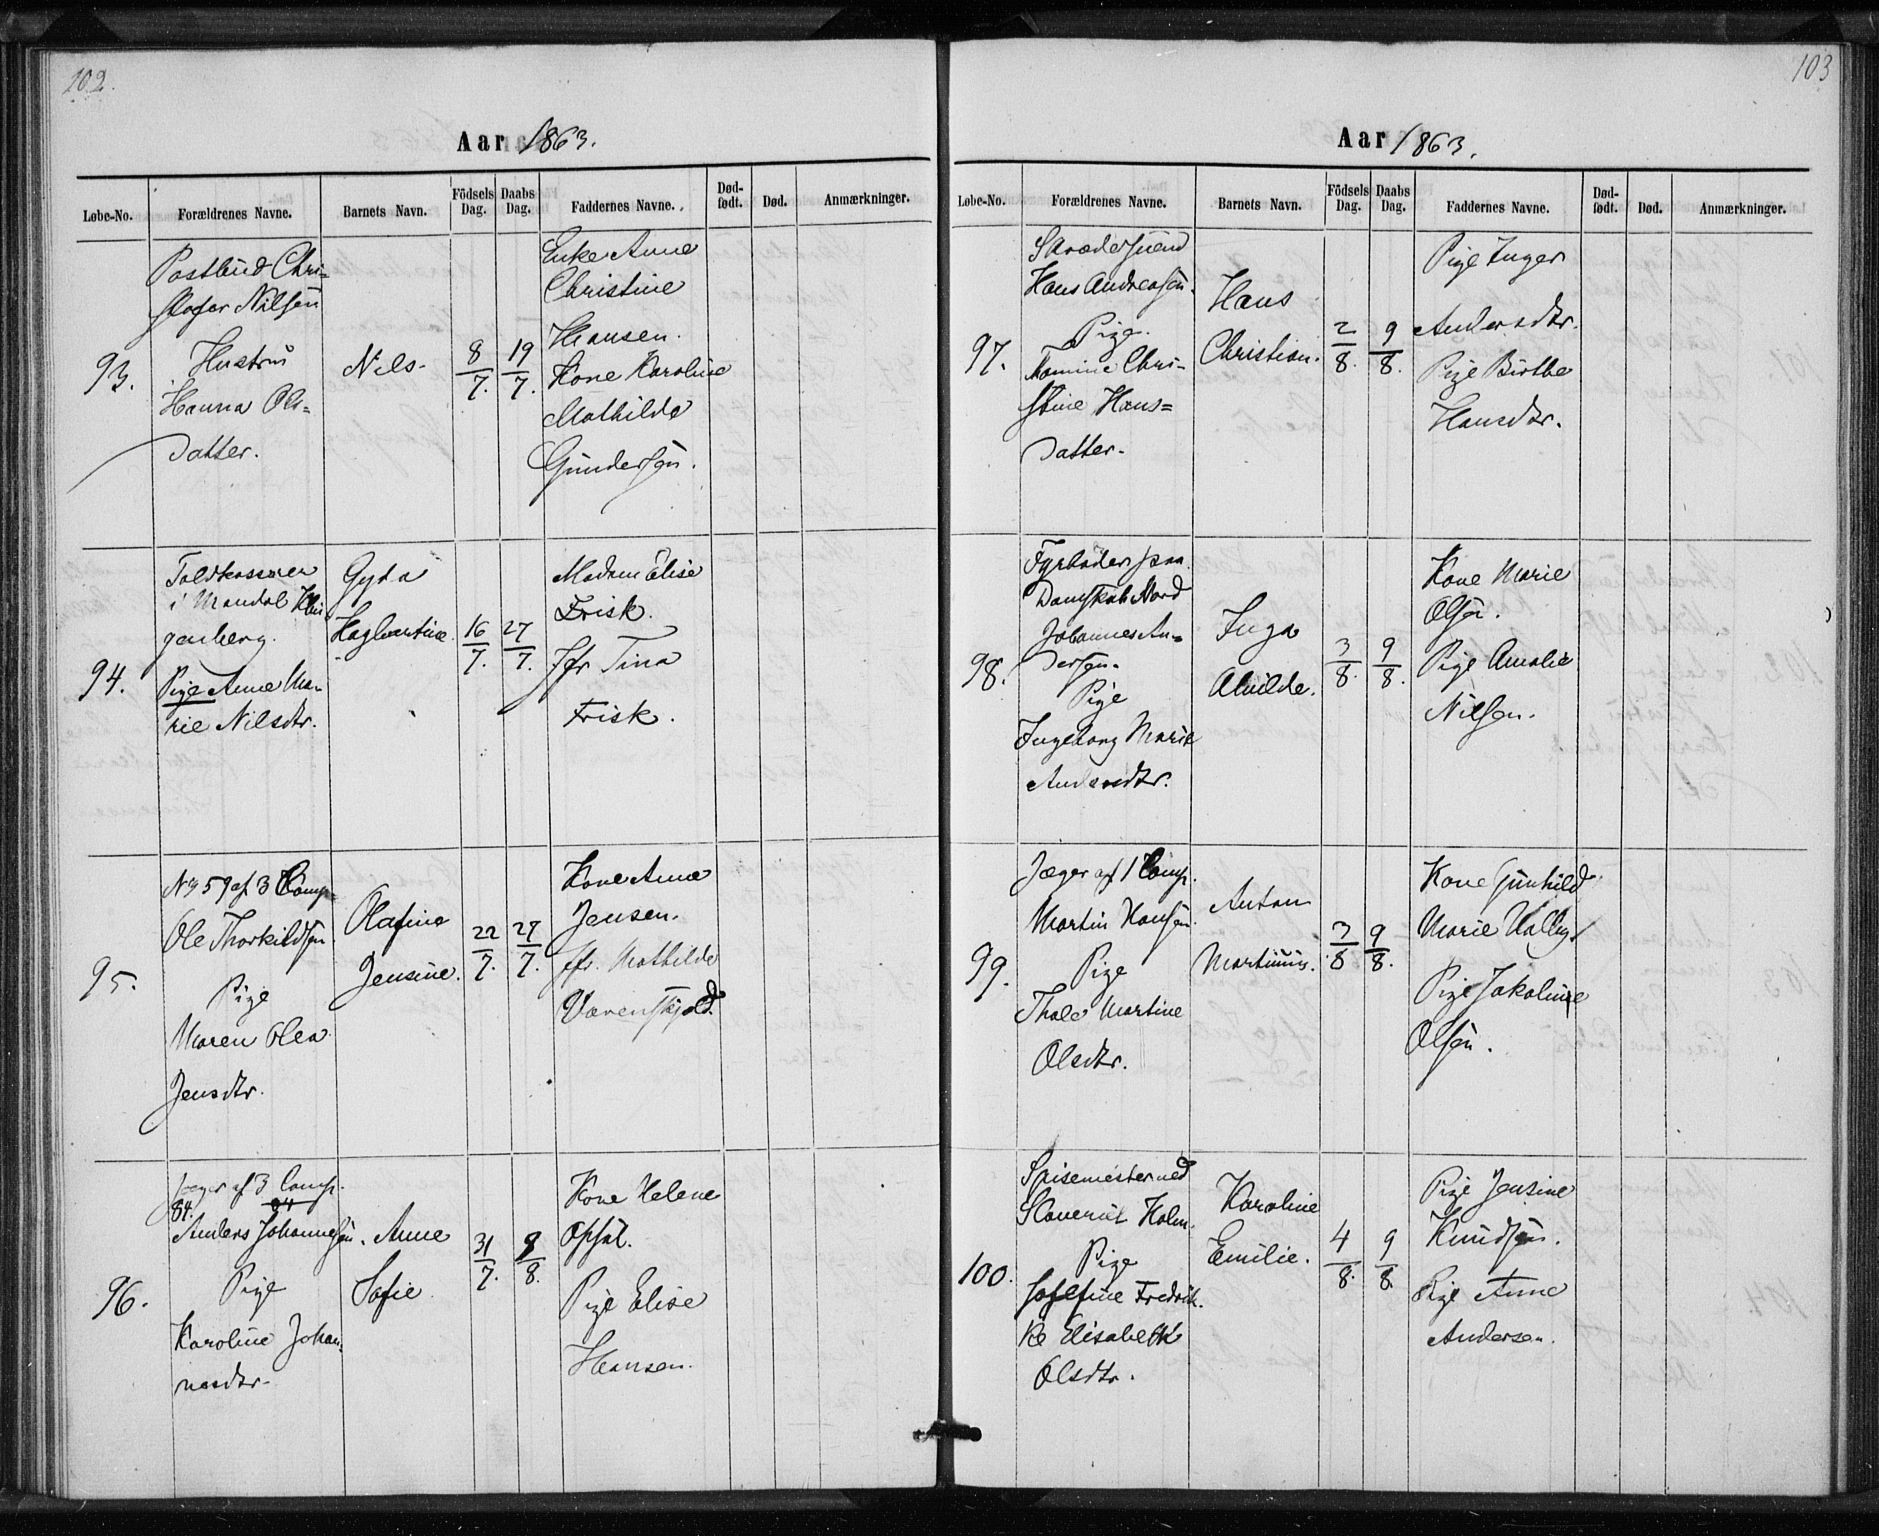 102.
Aar 1863.
Løbe-No. Forældrenes Navne. Barnets Navn. Födsels Dag. Daabs Dag. Faddernes Navne. Død-født. Død. Anmærkninger.
93.
Postbud Chri-
stofer Nilsen
Hustru
Hanna Ols=
datter.
Nils.
8/7.
19/7.
Enke Anne
Christine
Hansen.
Kone Karoline
Mathilde
Gundersen.
94.
Toldkasserer
i Mandal
genberg.
Pige Anne Ma-
rie Nilsdtr.
Gyda
Hagbartine.
16/7.
27/7.
Madam Elise
Frisk.
Jfr Tina
Frisk.
95.
No 59 af 3 Comp.
Ole Thorkildsen
Pige
Maren Olea
Jensdtr.
Olafine
Jensine.
22/7.
27/7.
Kone Anne
Jensen.
Jfr. Mathilde
Varenskjold.
96.
Jæger af 3 Comp.
84.
Anders Johannesen.
Pige
Karoline Johan-
nesdtr.
Anne
Sofie
31/7.
9/8.
Kone Helene
Opsal.
Pige Elise
Hansen.
103
Aar 1863.
Løbe-No. Forældrenes Navne. Barnets Navn. Födsels Dag. Daabs Dag. Faddernes Navne. Død-født. Død. Anmærkninger.
97.
Skrædersvend
Hans Andreasen.
Pige.
Chri-
stine Hans=
datter.
Hans
Christian.
2/8.
9/8.
Pige Inger
Andersdtr.
Pige Birthe
Hansdtr.
98.
Fyrbøder paa
Dampskib Nord
Johannes An=
dersen.
Pige
Ingeborg Marie
Andersdtr.
Inga
Alvilde.
3/8.
9/8.
Kone Marie
Olsen.
Pige Amalie
Nilsen.
99.
Jæger af 1 Comp.
Martin Hansen.
Pige
Thale Martine
Olsdtr.
Anton
Martinius.
3/8
9/8.
Kone Gunhild
Marie Halby
Pige Jakobine
Olsen.
100.
Spisemester ved
Slaveriet Holm.
Pige
Josefine Fredrik-
ke Elisabeth
Olsdtr.
Karoline
Emilie.
4/8.
9/8.
Pige Jensine
Knudsen.
Pige Anne
Andersen.